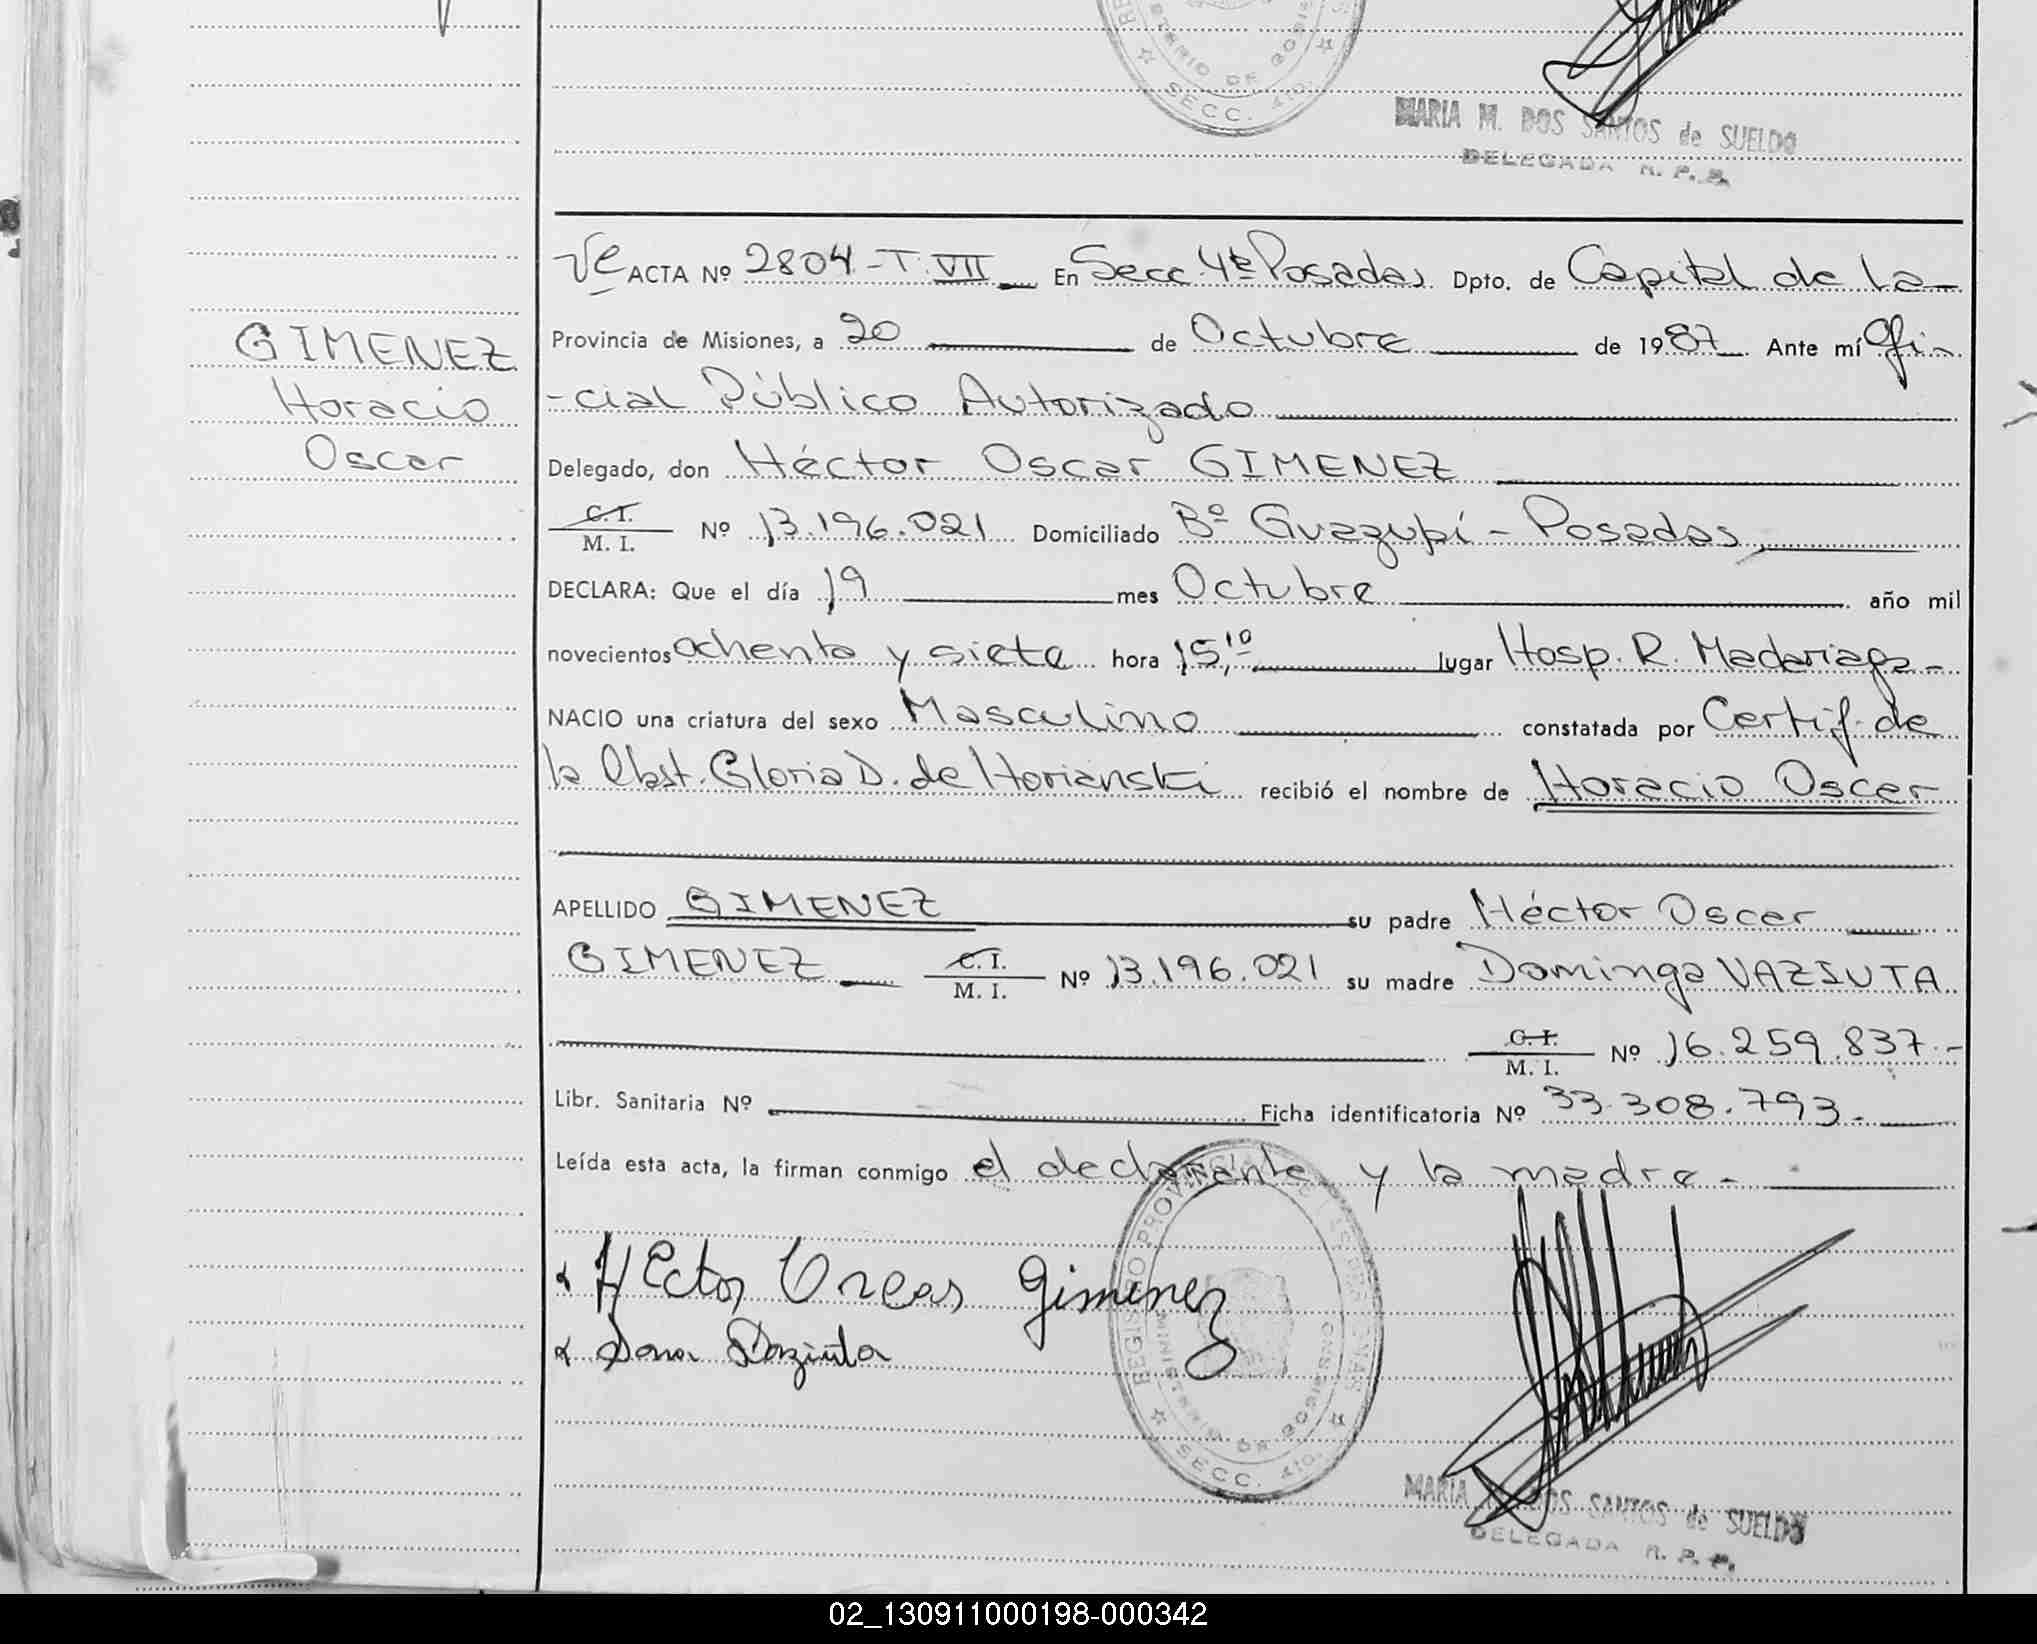 MINISTERIO DE GOBIERNO
SECC. 4ta.
MARIA M. DOS SANTOS de SUELDO
DELEGADA R. P. P.
ACTA Nº 2804-T.VII En Secc. 4ta Posadas Dpto. de Capital de la-
Provincia de Misiones, a 20 de Octubre de 1987 Ante mí Ofi-
-cial Público Autorizado
GIMENEZ
Horacio
Oscar
Delegado, don Héctor Oscar GIMENEZ
C.I.
M. I. Nº 13.196.021 Domiciliado Bº Guazupí - Posadas,
DECLARA: Que el día 19 mes Octubre año mil
novecientos ochenta y siete hora 15,10 lugar Hosp. R. Madariaga-
NACIO una criatura del sexo Masculino constatada por Certif. de
la Obst. Gloria D. de Horianski recibió el nombre de Horacio Oscar
APELLIDO GIMENEZ su padre Héctor Oscar
GIMENEZ C.I. M. I. Nº 13.196.021 su madre Dominga VAZIUTA
C.I. M. I. Nº 16.259.837.-
Libr. Sanitaria Nº Ficha identificatoria Nº 33.308.793.-
Leída esta acta, la firman conmigo el declarante y la madre.-
HEctor Orcas Gimenez
REGISTRO PROVINCIAL DE LAS PERSONAS
MINISTERIO DE GOBIERNO
SECC. 4ta.
MARIA M. DOS SANTOS de SUELDO
DELEGADA R. P. P.
02_130911000198-000342